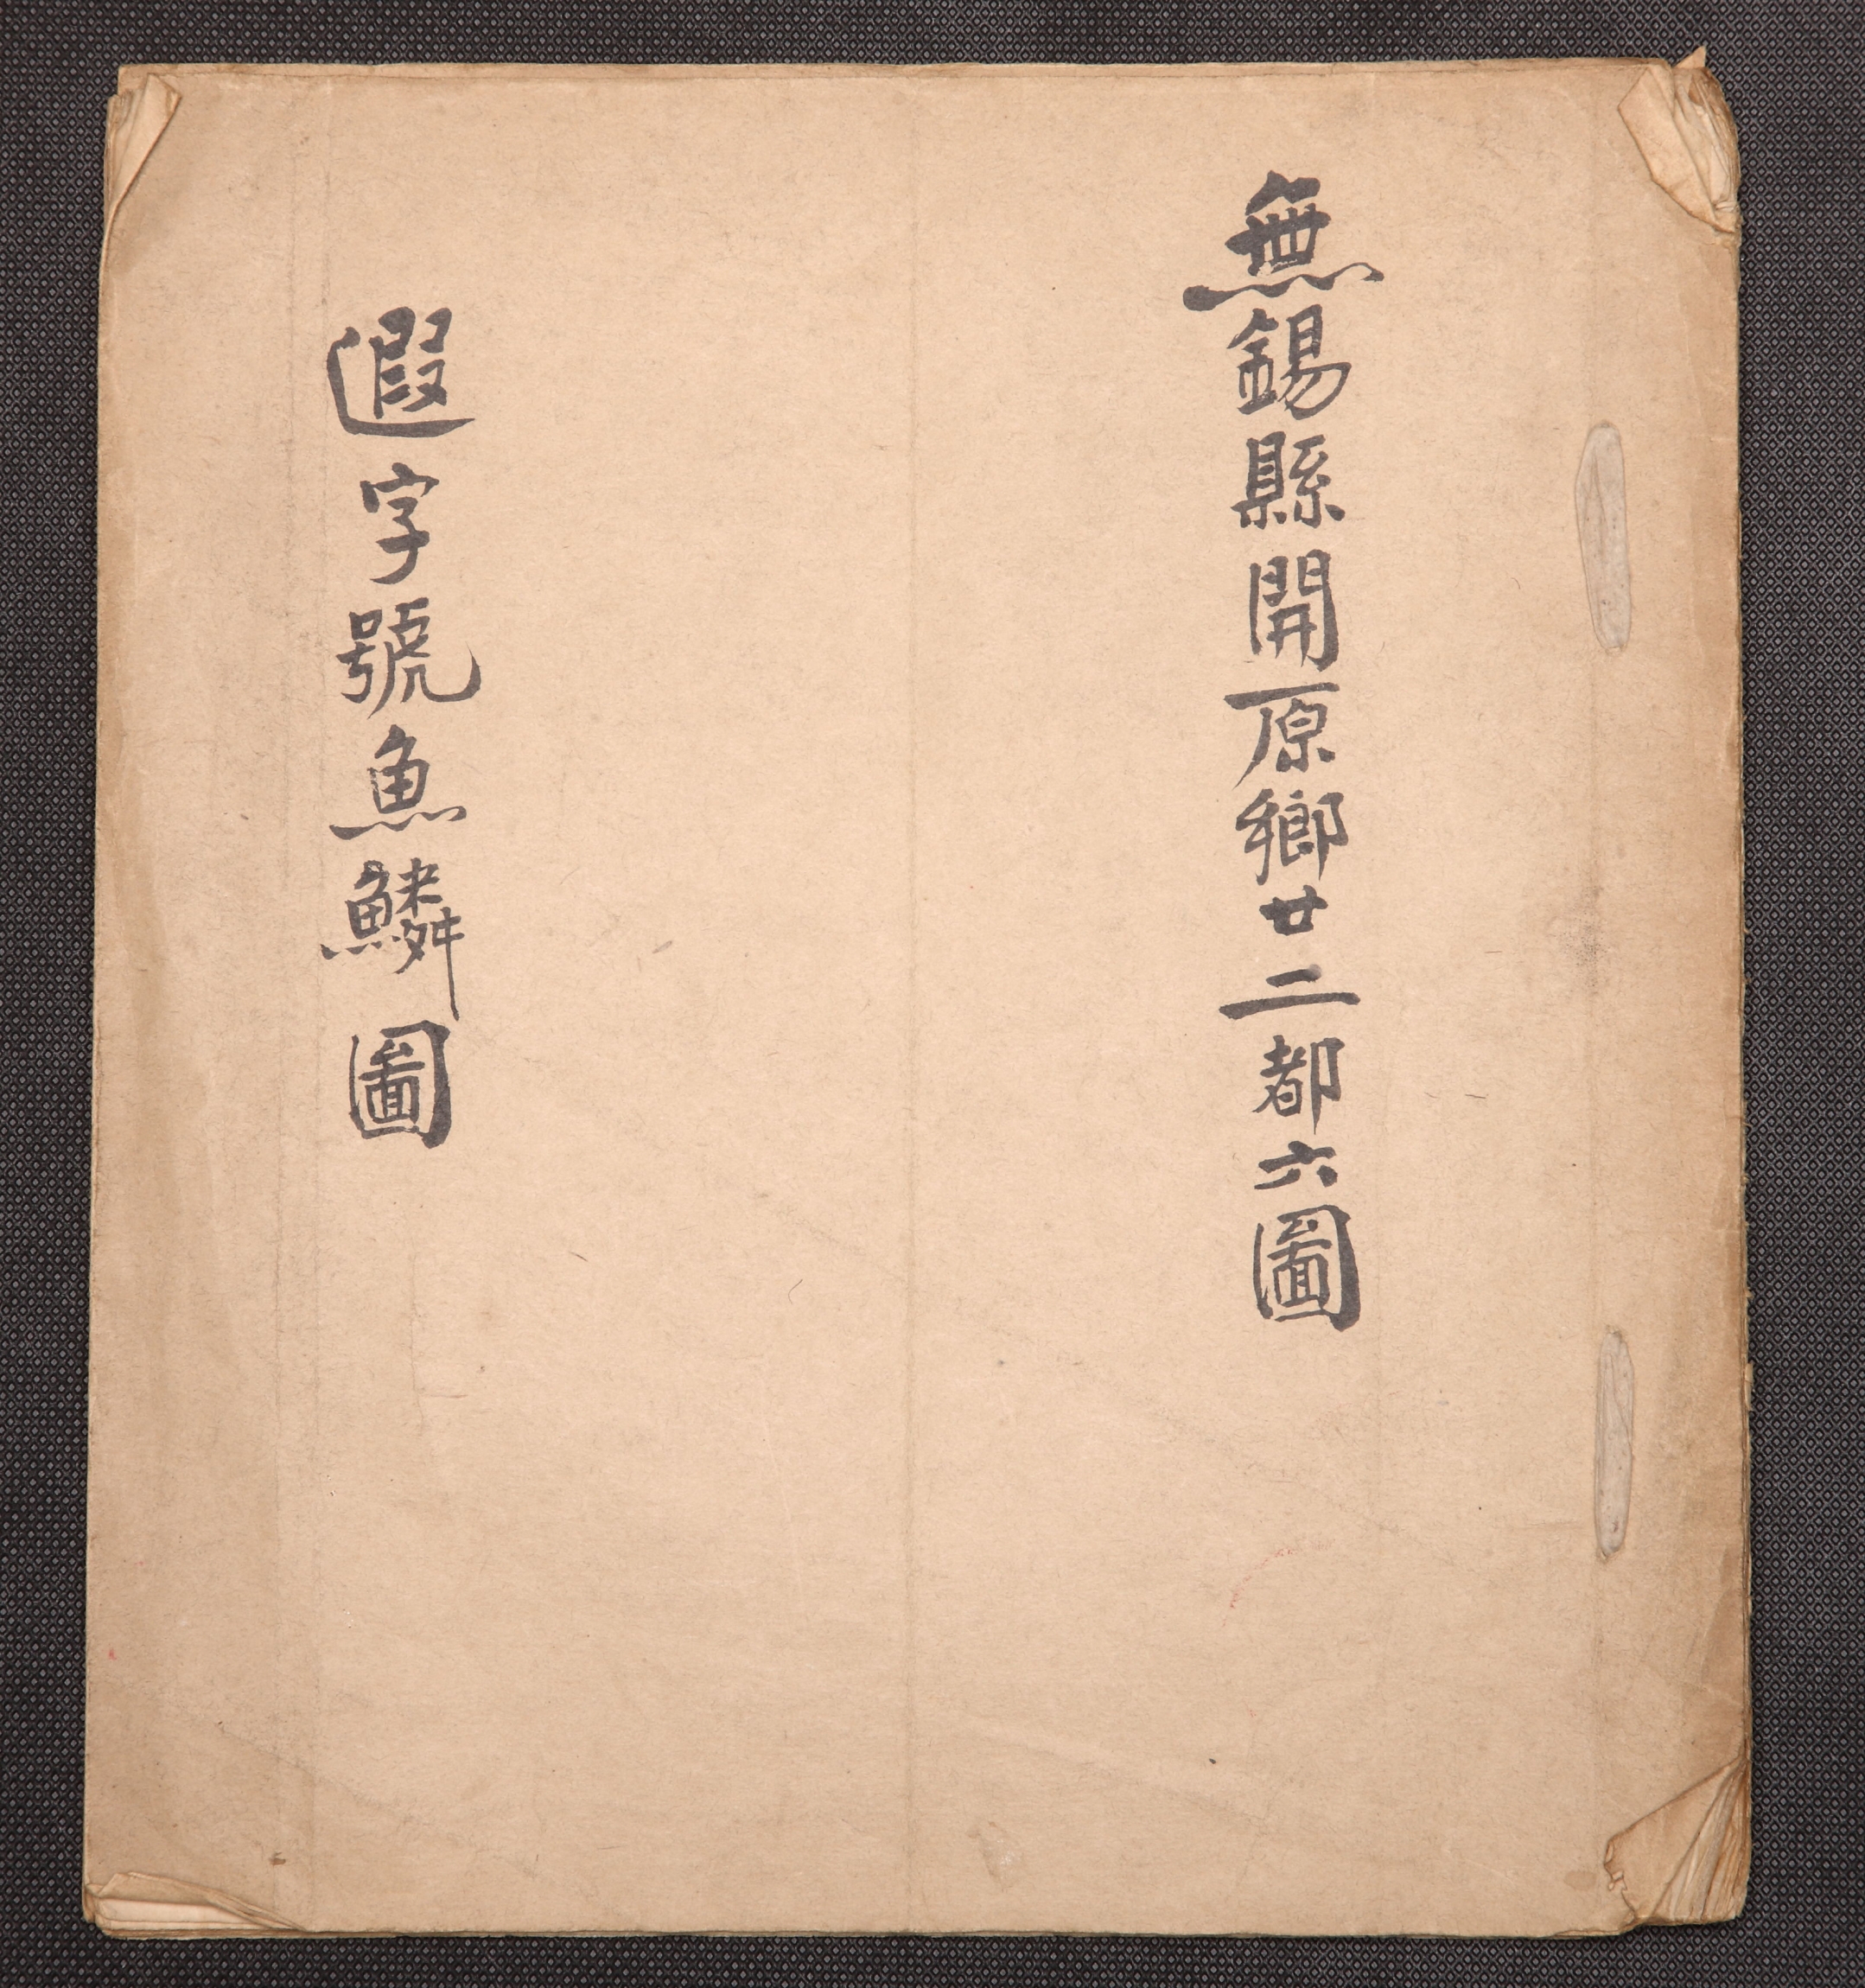 無錫縣開原鄉廿二都六圖
遐字號魚鱗圖